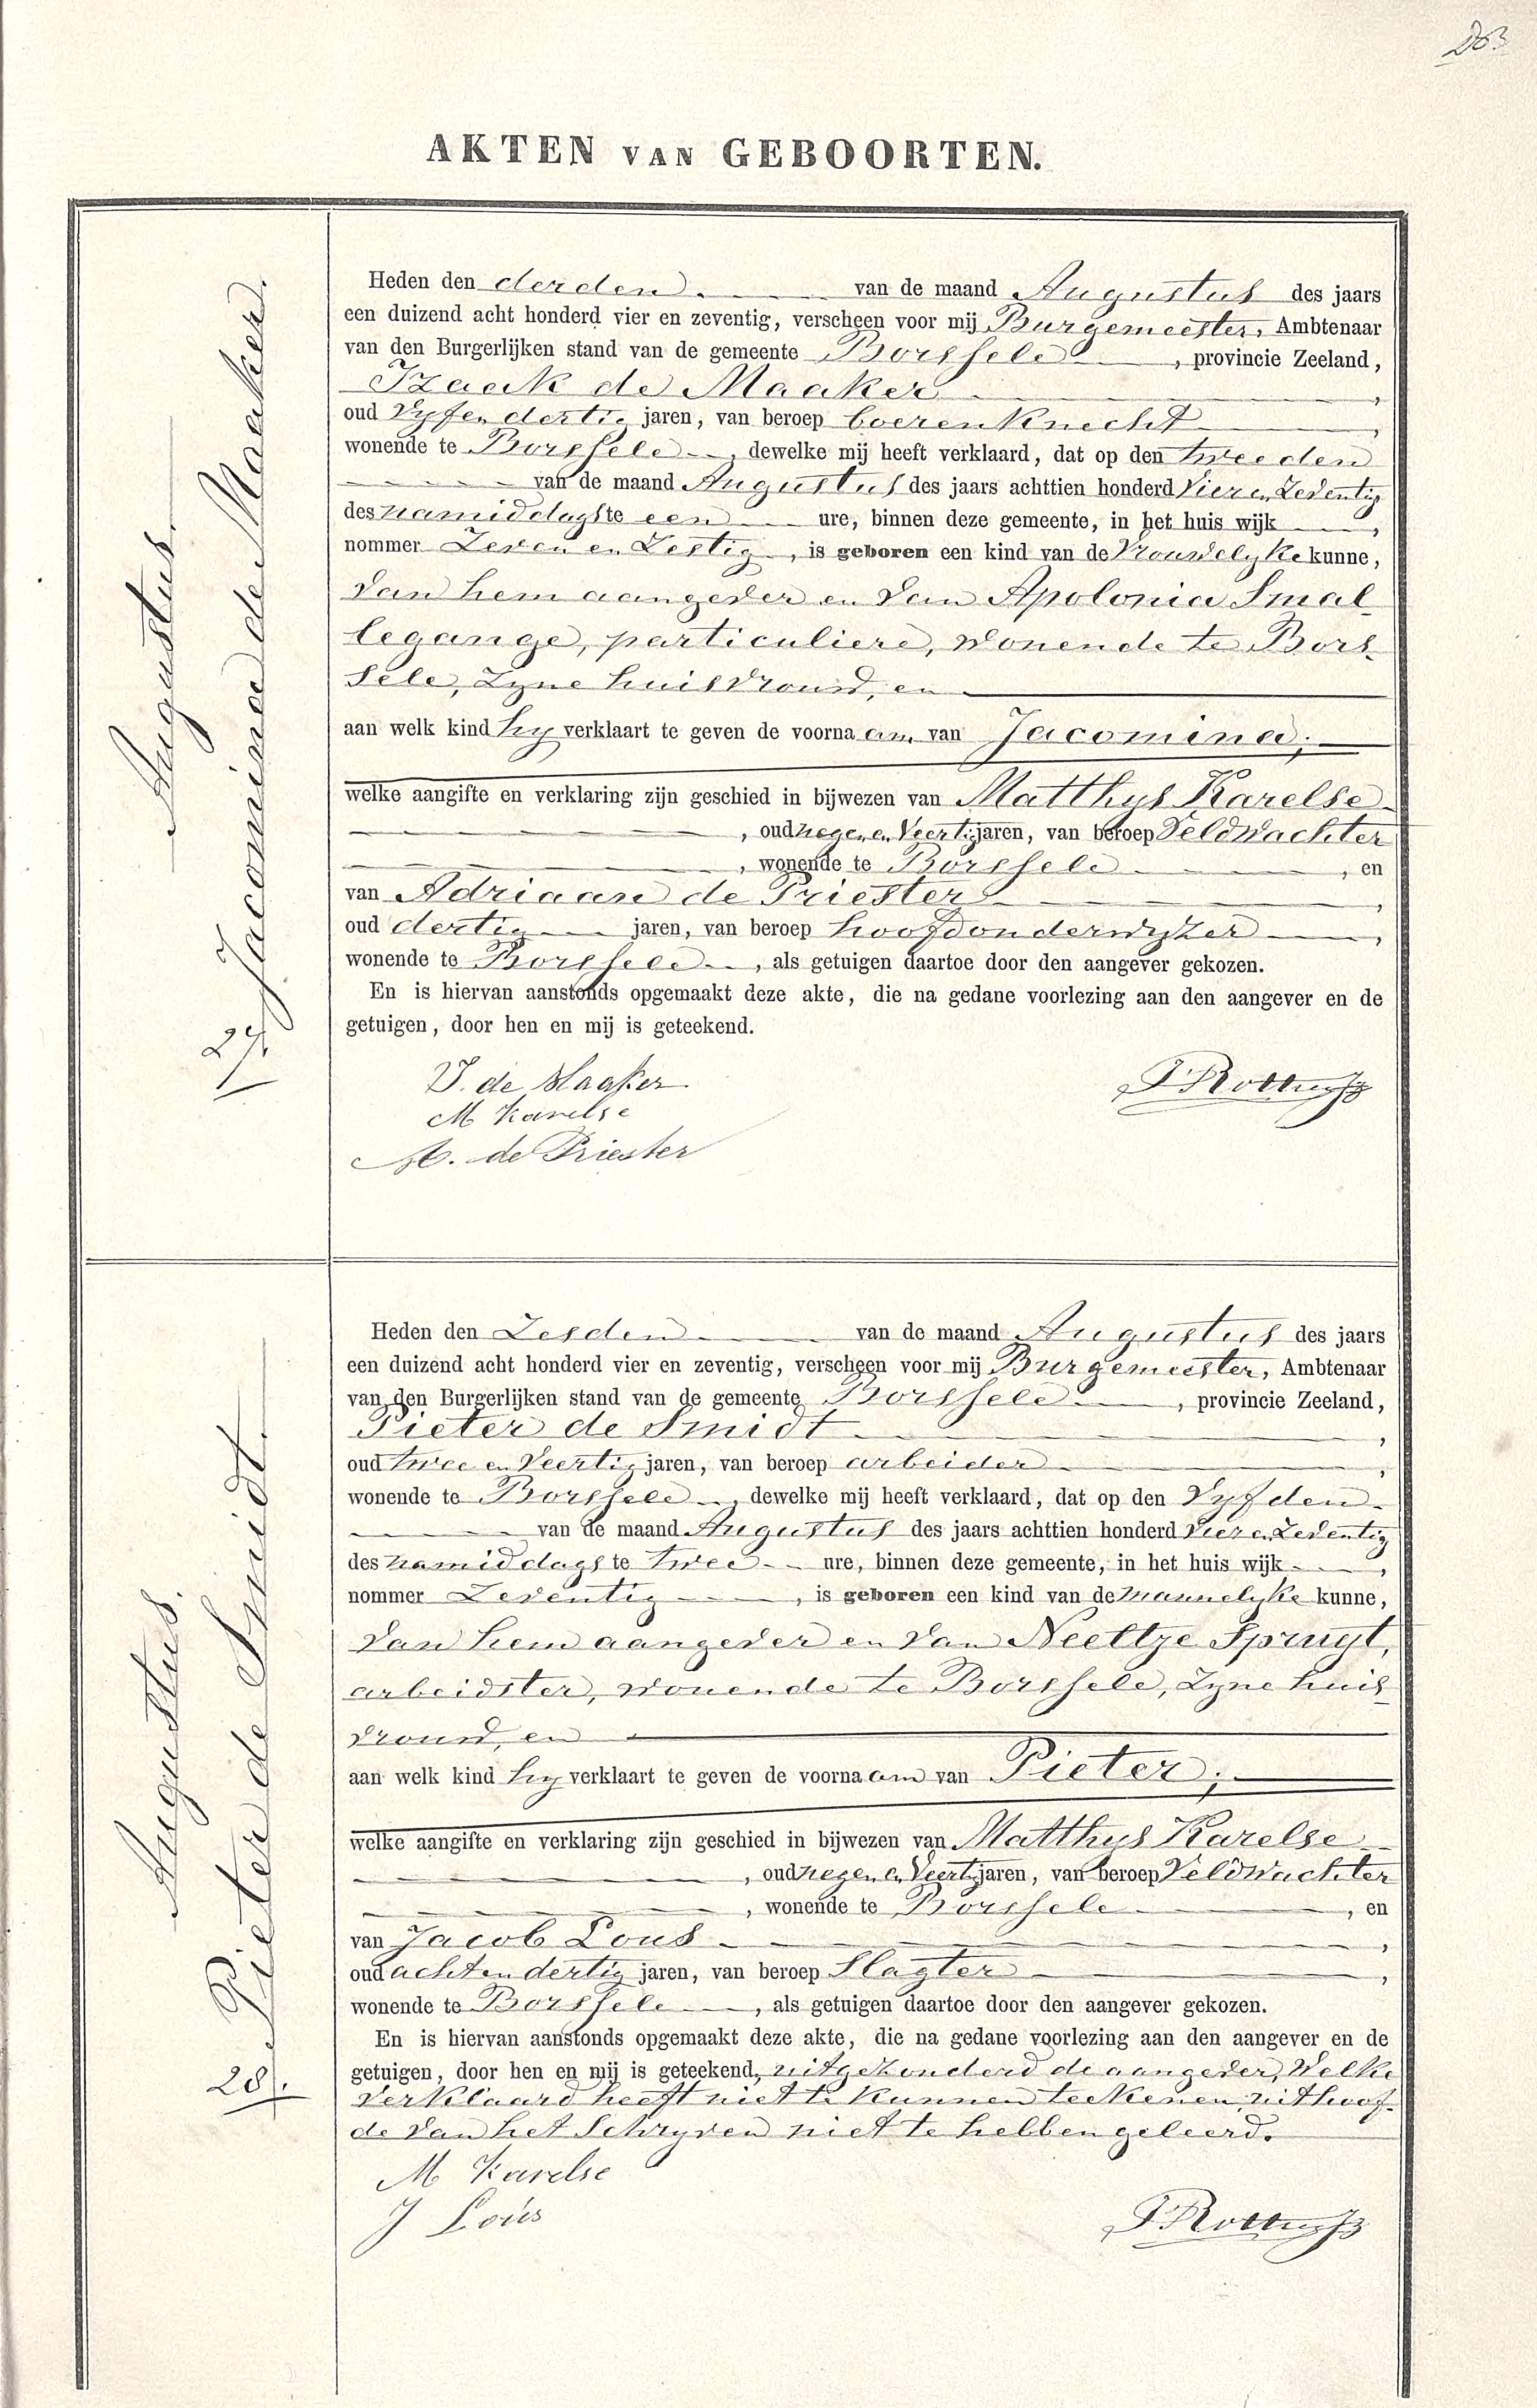 263
AKTEN VAN GEBOORTEN.
Augustus.
Jacomina de Maaker.
27.
Heden den derden. van de maand Augustus des jaars
een duizend acht honderd vier en zeventig, verscheen voor mij Burgemeester, Ambtenaar
van den Burgerlijken stand van de gemeente Borssele, provincie Zeeland,
Izaak de Maaker,
oud Vyf en dertig jaren, van beroep boerenknecht,
wonende te Borssele, dewelke mij heeft verklaard, dat op den tweeden
van de maand Augustus des jaars achttien honderd Vier en Zeventig
des namiddags te een ure, binnen deze gemeente, in het huis wijk ,
nommer Zeven en Zestig, is geboren een kind van de Vrouwelyke kunne,
Van hem aangever en Van Apolonia Smal
legange, particuliere, Wonende te Bors
sele, Zyne huisvrouw, en
aan welk kind hy verklaart te geven de voornaam van Jacomina;
welke aangifte en verklaring zijn geschied in bijwezen van Matthys Karelse
, oud negen en Veertig jaren, van beroep Veldwachter
, wonende te Borssele, en
van Adriaan de Priester,
oud dertig jaren, van beroep hoofdonderwyzer,
wonende te Borssele, als getuigen daartoe door den aangever gekozen.
En is hiervan aanstonds opgemaakt deze akte, die na gedane voorlezing aan den aangever en de
getuigen, door hen en mij is geteekend.
I. de Maaker
M Karelse
A. de Priester
Augustus.
Pieter de Smidt.
28.
Heden den Zesden van de maand Augustus des jaars
een duizend acht honderd vier en zeventig, verscheen voor mij Burgemeester, Ambtenaar
van den Burgerlijken stand van de gemeente Borssele, provincie Zeeland,
Pieter de Smidt,
oud twee en Veertig jaren, van beroep arbeider,
wonende te Borssele, dewelke mij heeft verklaard, dat op den Vyfden
van de maand Augustus des jaars achttien honderd Vier en Zeventig
des namiddags te twee ure, binnen deze gemeente, in het huis wijk ,
nommer Zeventig, is geboren een kind van de mannelyke kunne,
Van hem aangever en Van Neeltje Spruyt,
arbeidster, wonende te Borssele, Zyne huis
vrouw, en
aan welk kind hy verklaart te geven de voornaam van Pieter;
welke aangifte en verklaring zijn geschied in bijwezen van Matthys Karelse
, oud negen en Veertig jaren, van beroep Veldwachter
, wonende te Borssele, en
van Jacob Lous,
oud acht en dertig jaren, van beroep Slagter,
wonende te Borssele, als getuigen daartoe door den aangever gekozen.
En is hiervan aanstonds opgemaakt deze akte, die na gedane voorlezing aan den aangever en de
getuigen, door hen en mij is geteekend, uitgezonderd de aangever, Welke
Verklaard heeft niet te kunnen teekenen, uit hoof
de Van het Schryven niet te hebben geleerd.
M Karelse
J Lous